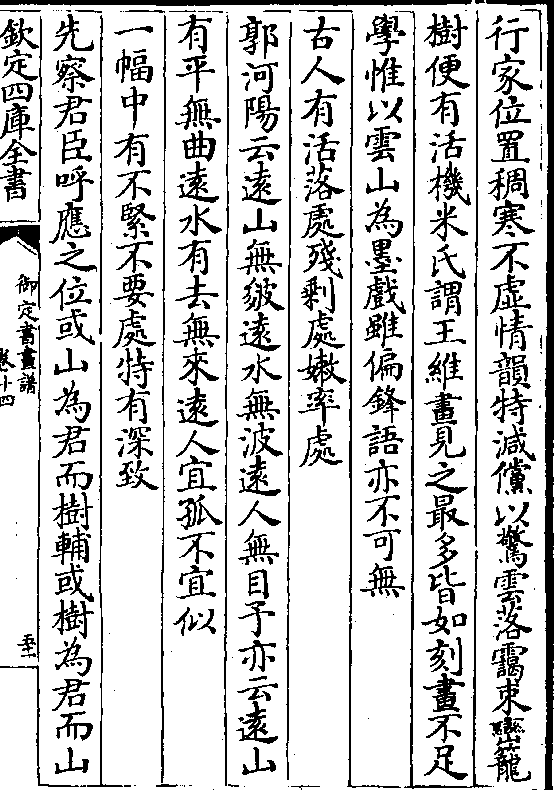 行家位置稠寒不虛情韻特減儻以驚雲落靄束巒籠
樹便有活機米氏謂王維畫見之最多皆如刻畫不足
學惟以雲山為墨戲雖偏鋒語亦不可無
古人有活落處殘剩處嫩率處
郭河陽云遠山無皴遠水無波遠人無目予亦云遠山
有平無曲遠水有去無來遠人宜孤不宜似
一幅中有不緊不要處特有深致
先察君臣呼應之位或山為君而樹輔或樹為君而山
欽定四庫全書
御定書畫譜
卷十四